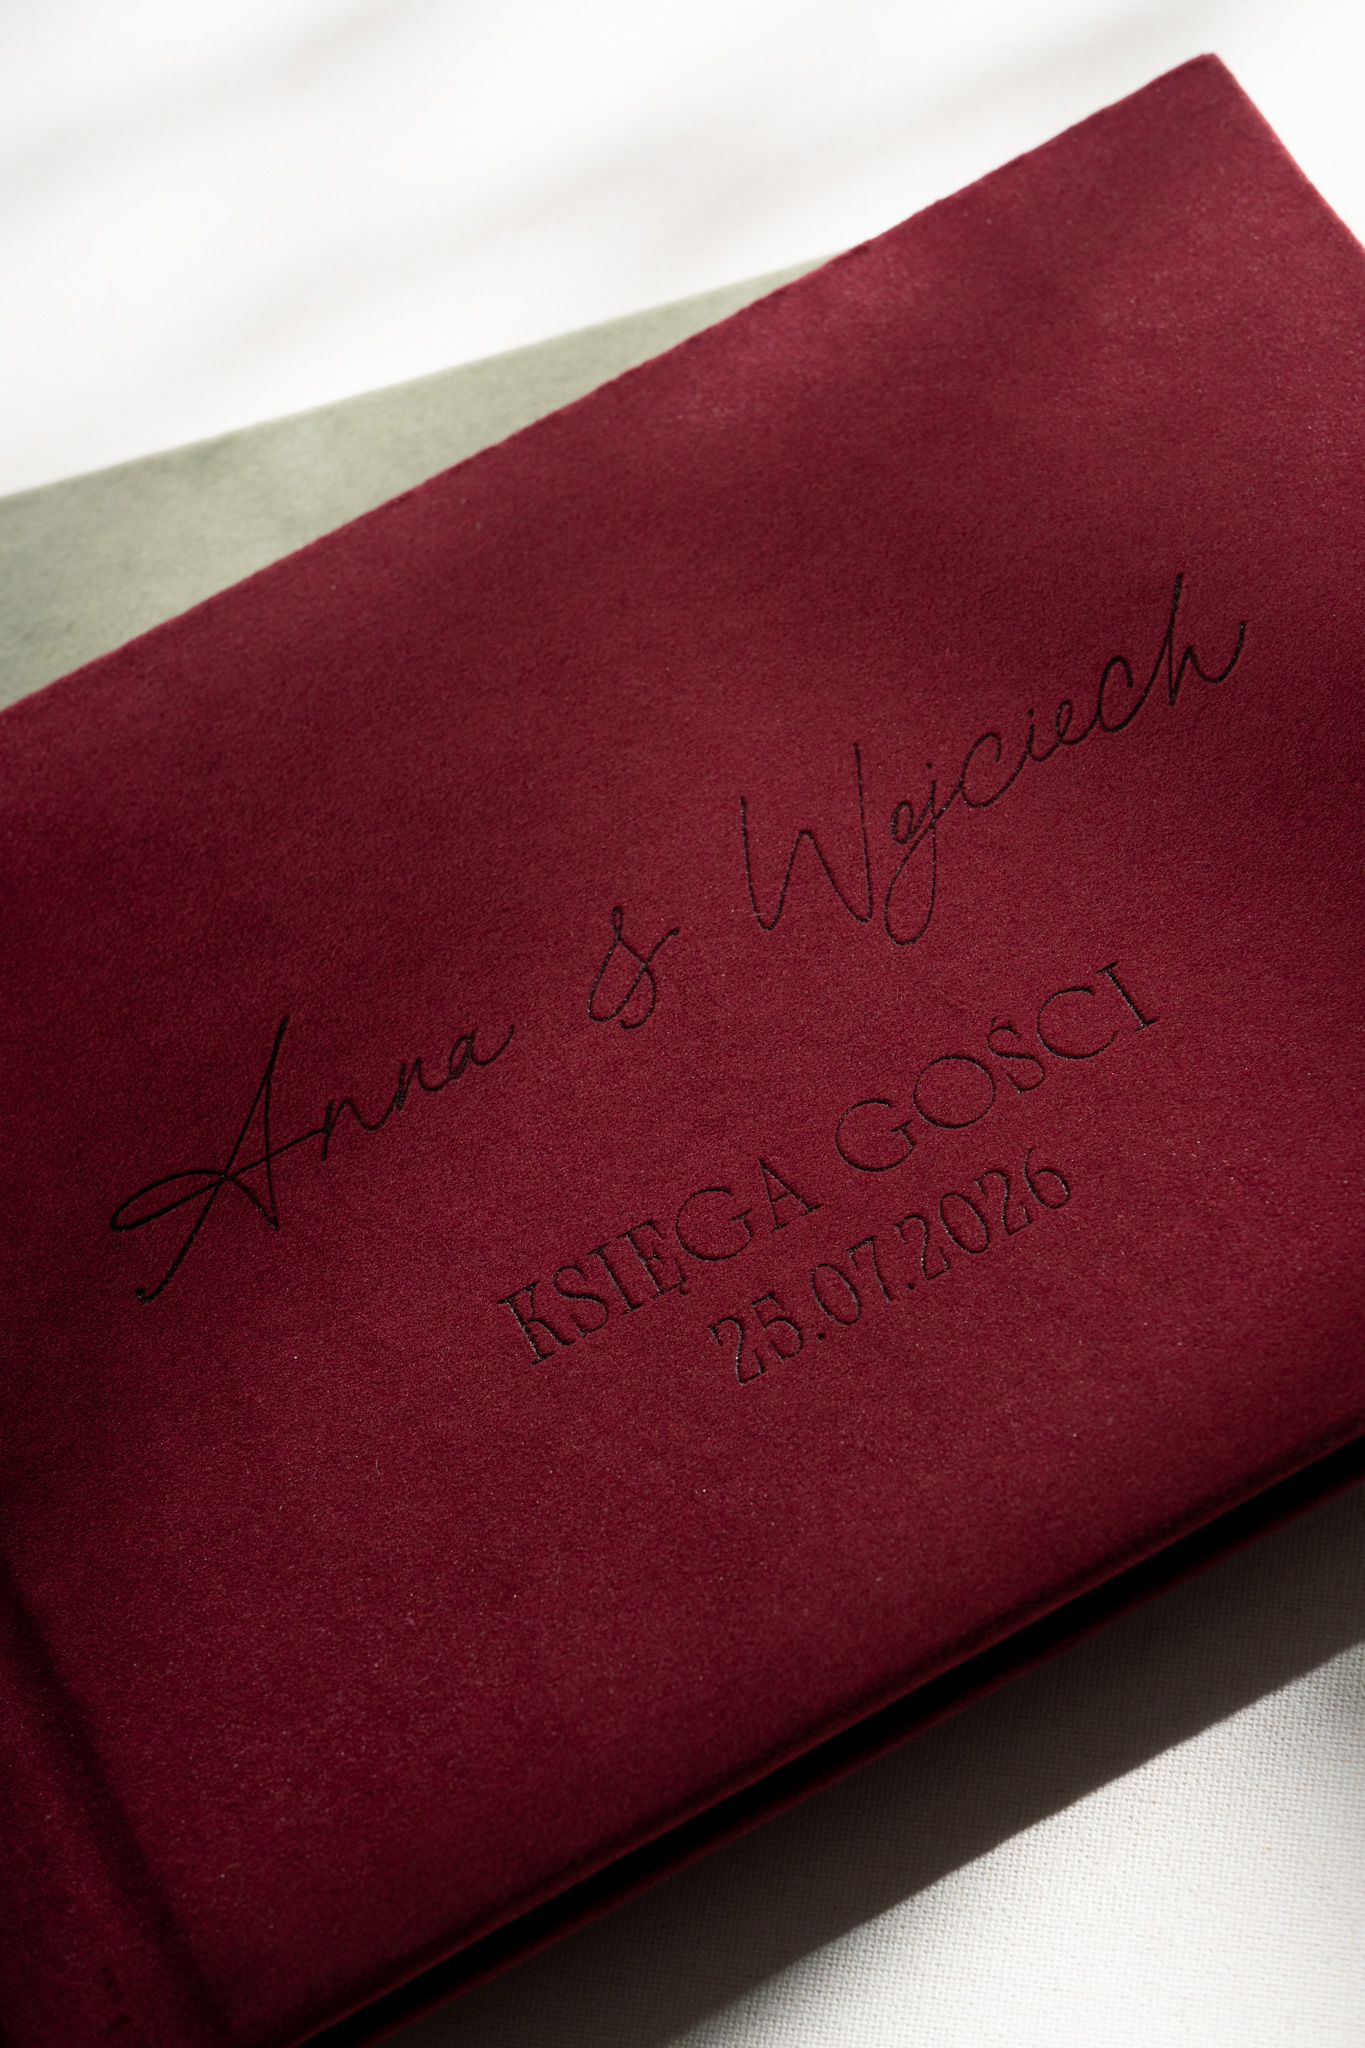 Anna & Wojciech
KSIĘGA GOŚCI
25.07.2026